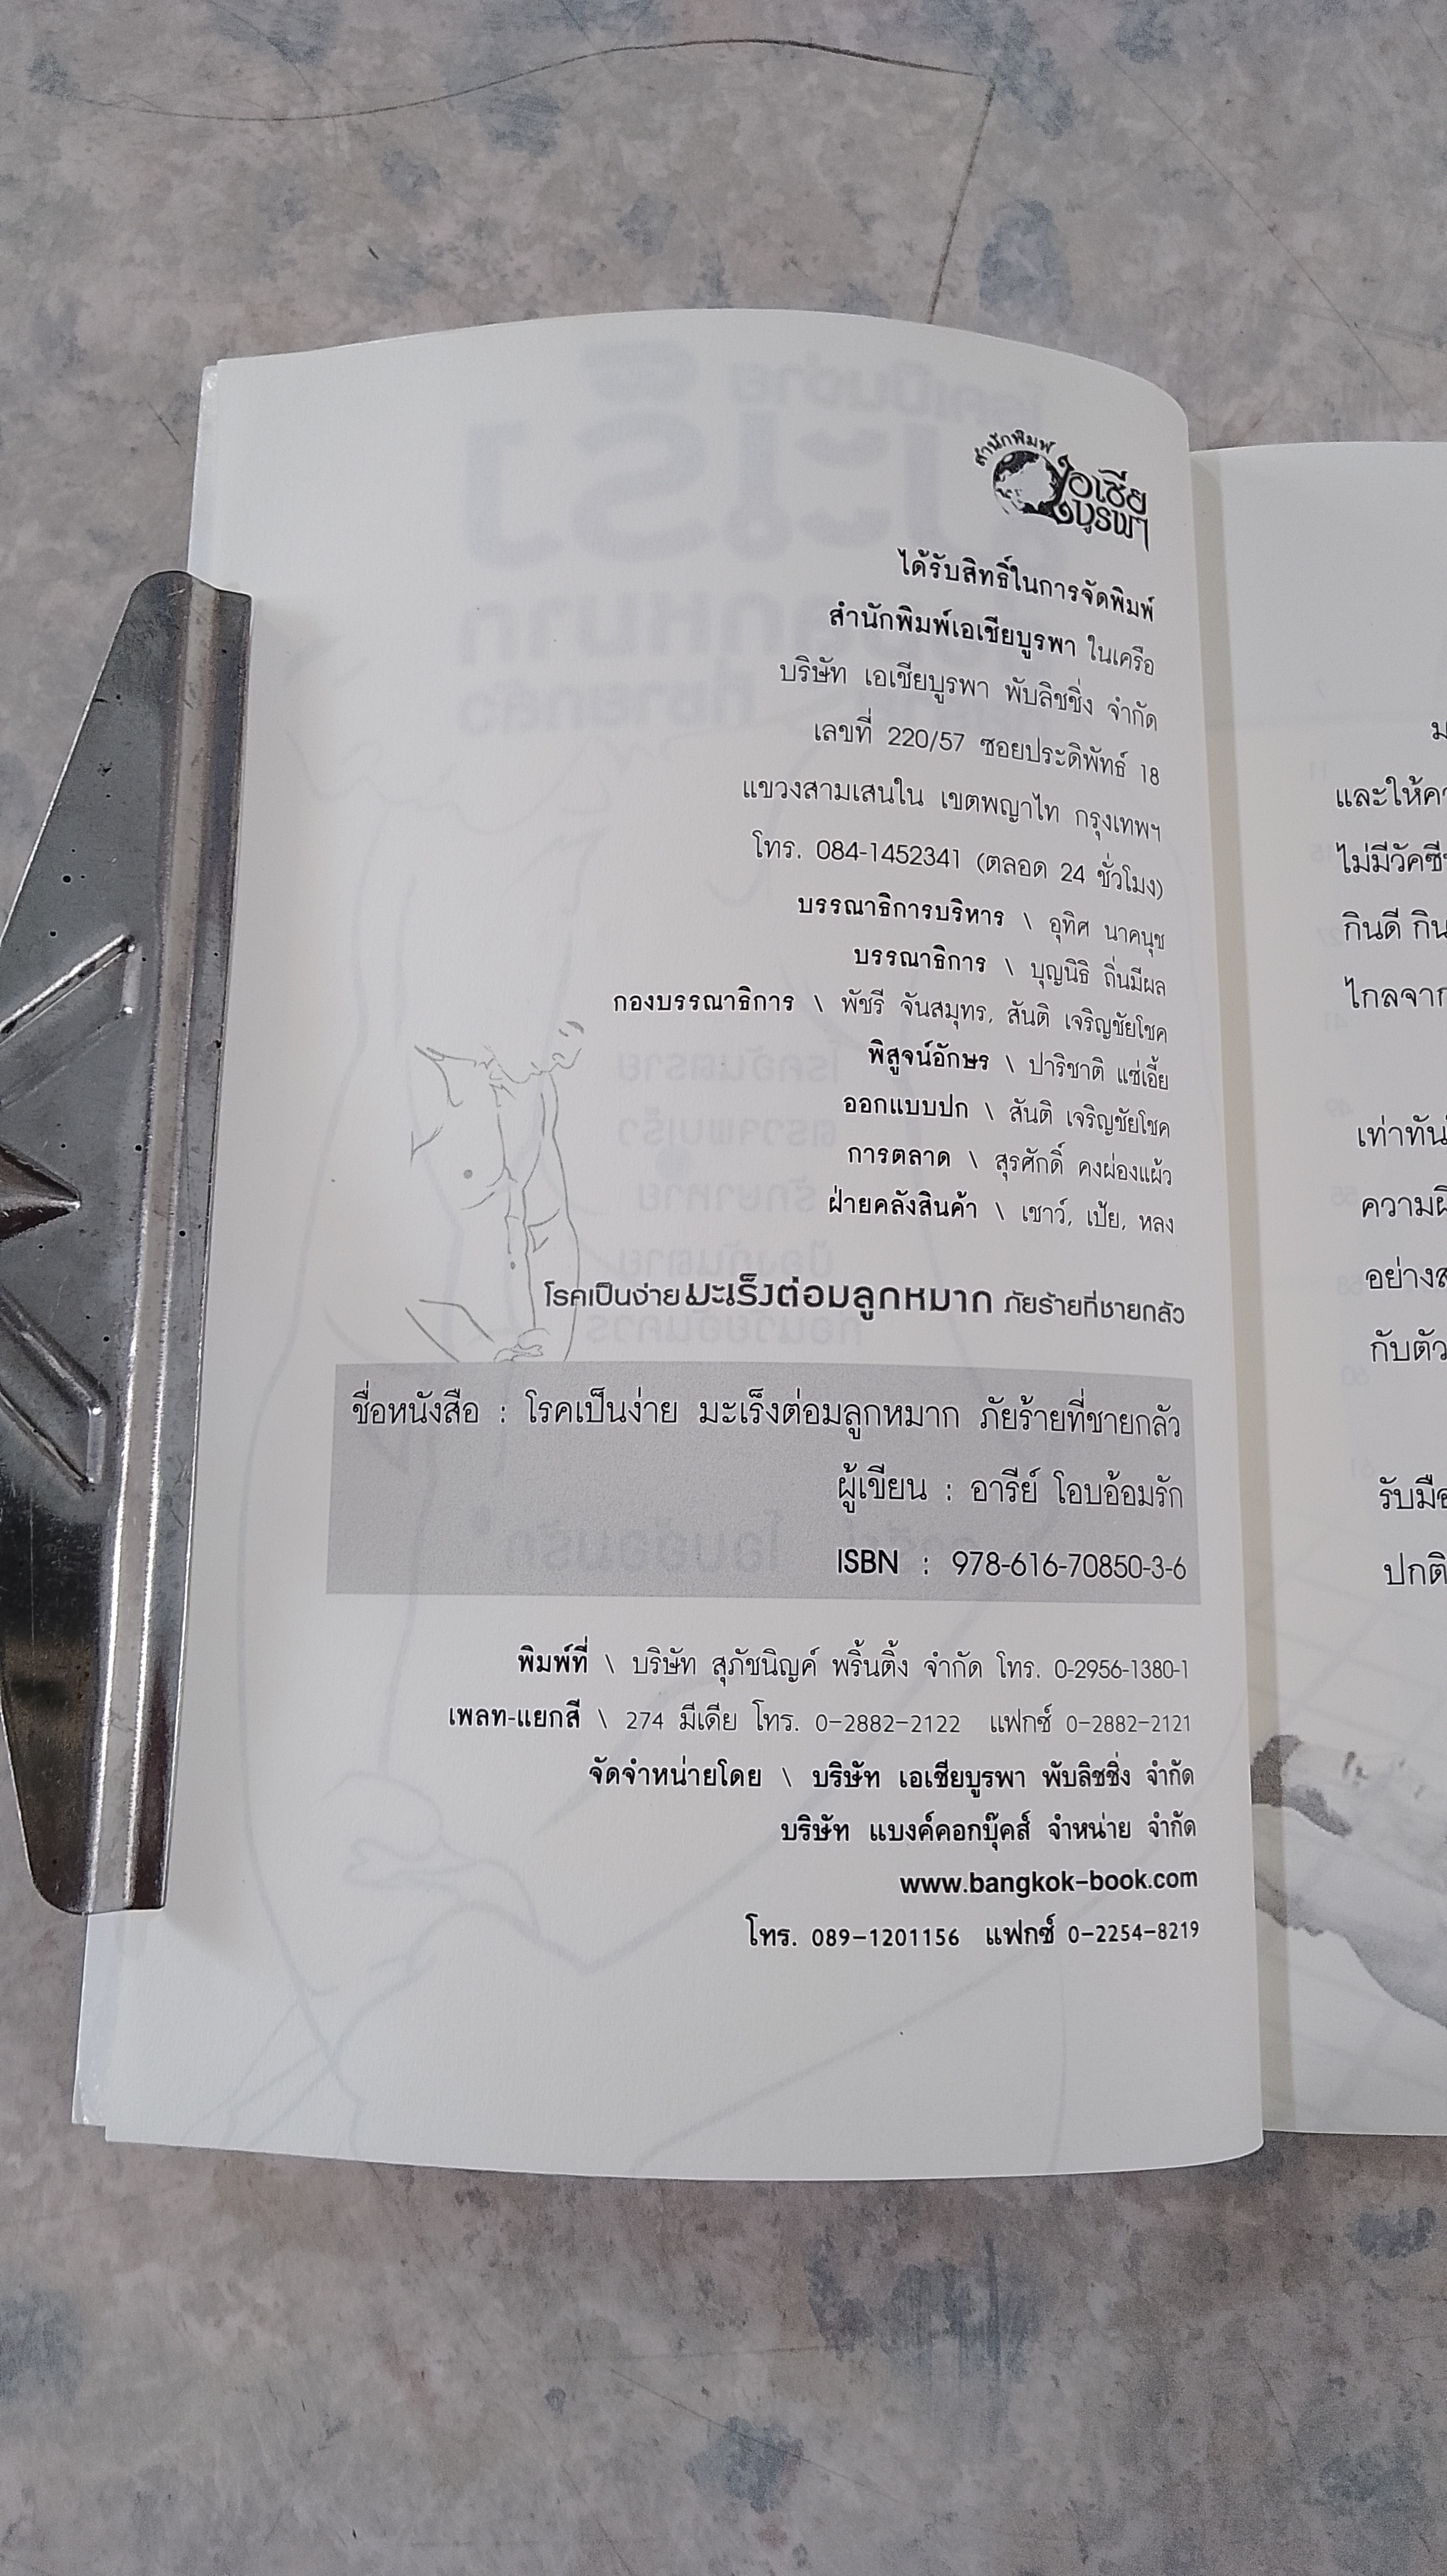 สำนักพิมพ์
เอเซีย
บูรพา
ได้รับสิทธิ์ในการจัดพิมพ์
สำนักพิมพ์เอเซียบูรพา ในเครือ
บริษัท เอเซียบูรพา พับลิชชิ่ง จำกัด
เลขที่ 220/57 ซอยประดิพัทธ์ 18
แขวงสามเสนใน เขตพญาไท กรุงเทพฯ
โทร. 084-1452341 (ตลอด 24 ชั่วโมง)
บรรณาธิการบริหาร \ อุทิศ นาคนุช
บรรณาธิการ \ บุญนิธิ ถิ่นมีผล
กองบรรณาธิการ \ พัชรี จันสมุทร, สันติ เจริญชัยโชค
พิสูจน์อักษร \ ปาริชาติ แซ่เอี้ย
ออกแบบปก \ สันติ เจริญชัยโชค
การตลาด \ สุรศักดิ์ คงผ่องแผ้ว
ฝ่ายคลังสินค้า \ เชาว์, เป้ย, หลง
โรคเป็นง่าย มะเร็งต่อมลูกหมาก ภัยร้ายที่ชายกลัว
ชื่อหนังสือ : โรคเป็นง่าย มะเร็งต่อมลูกหมาก ภัยร้ายที่ชายกลัว
ผู้เขียน : อารีย์ โอบอ้อมรัก
ISBN : 978-616-70850-3-6
พิมพ์ที่ \ บริษัท สุภัชนิญค์ พริ้นติ้ง จำกัด โทร. 0-2956-1380-1
เพลท-แยกสี \ 274 มีเดีย โทร. 0-2882-2122 แฟกซ์ 0-2882-2121
จัดจำหน่ายโดย \ บริษัท เอเซียบูรพา พับลิชชิ่ง จำกัด
บริษัท แบงค์คอกบุ๊คส์ จำหน่าย จำกัด
www.bangkok-book.com
โทร. 089-1201156 แฟกซ์ 0-2254-8219
และให้
ไม่มีวัคซี
กินดี กิน
ไกลจาก
เท่าทัน
ความ
อย่าง
กับตัว
รับมือ
ปกติ